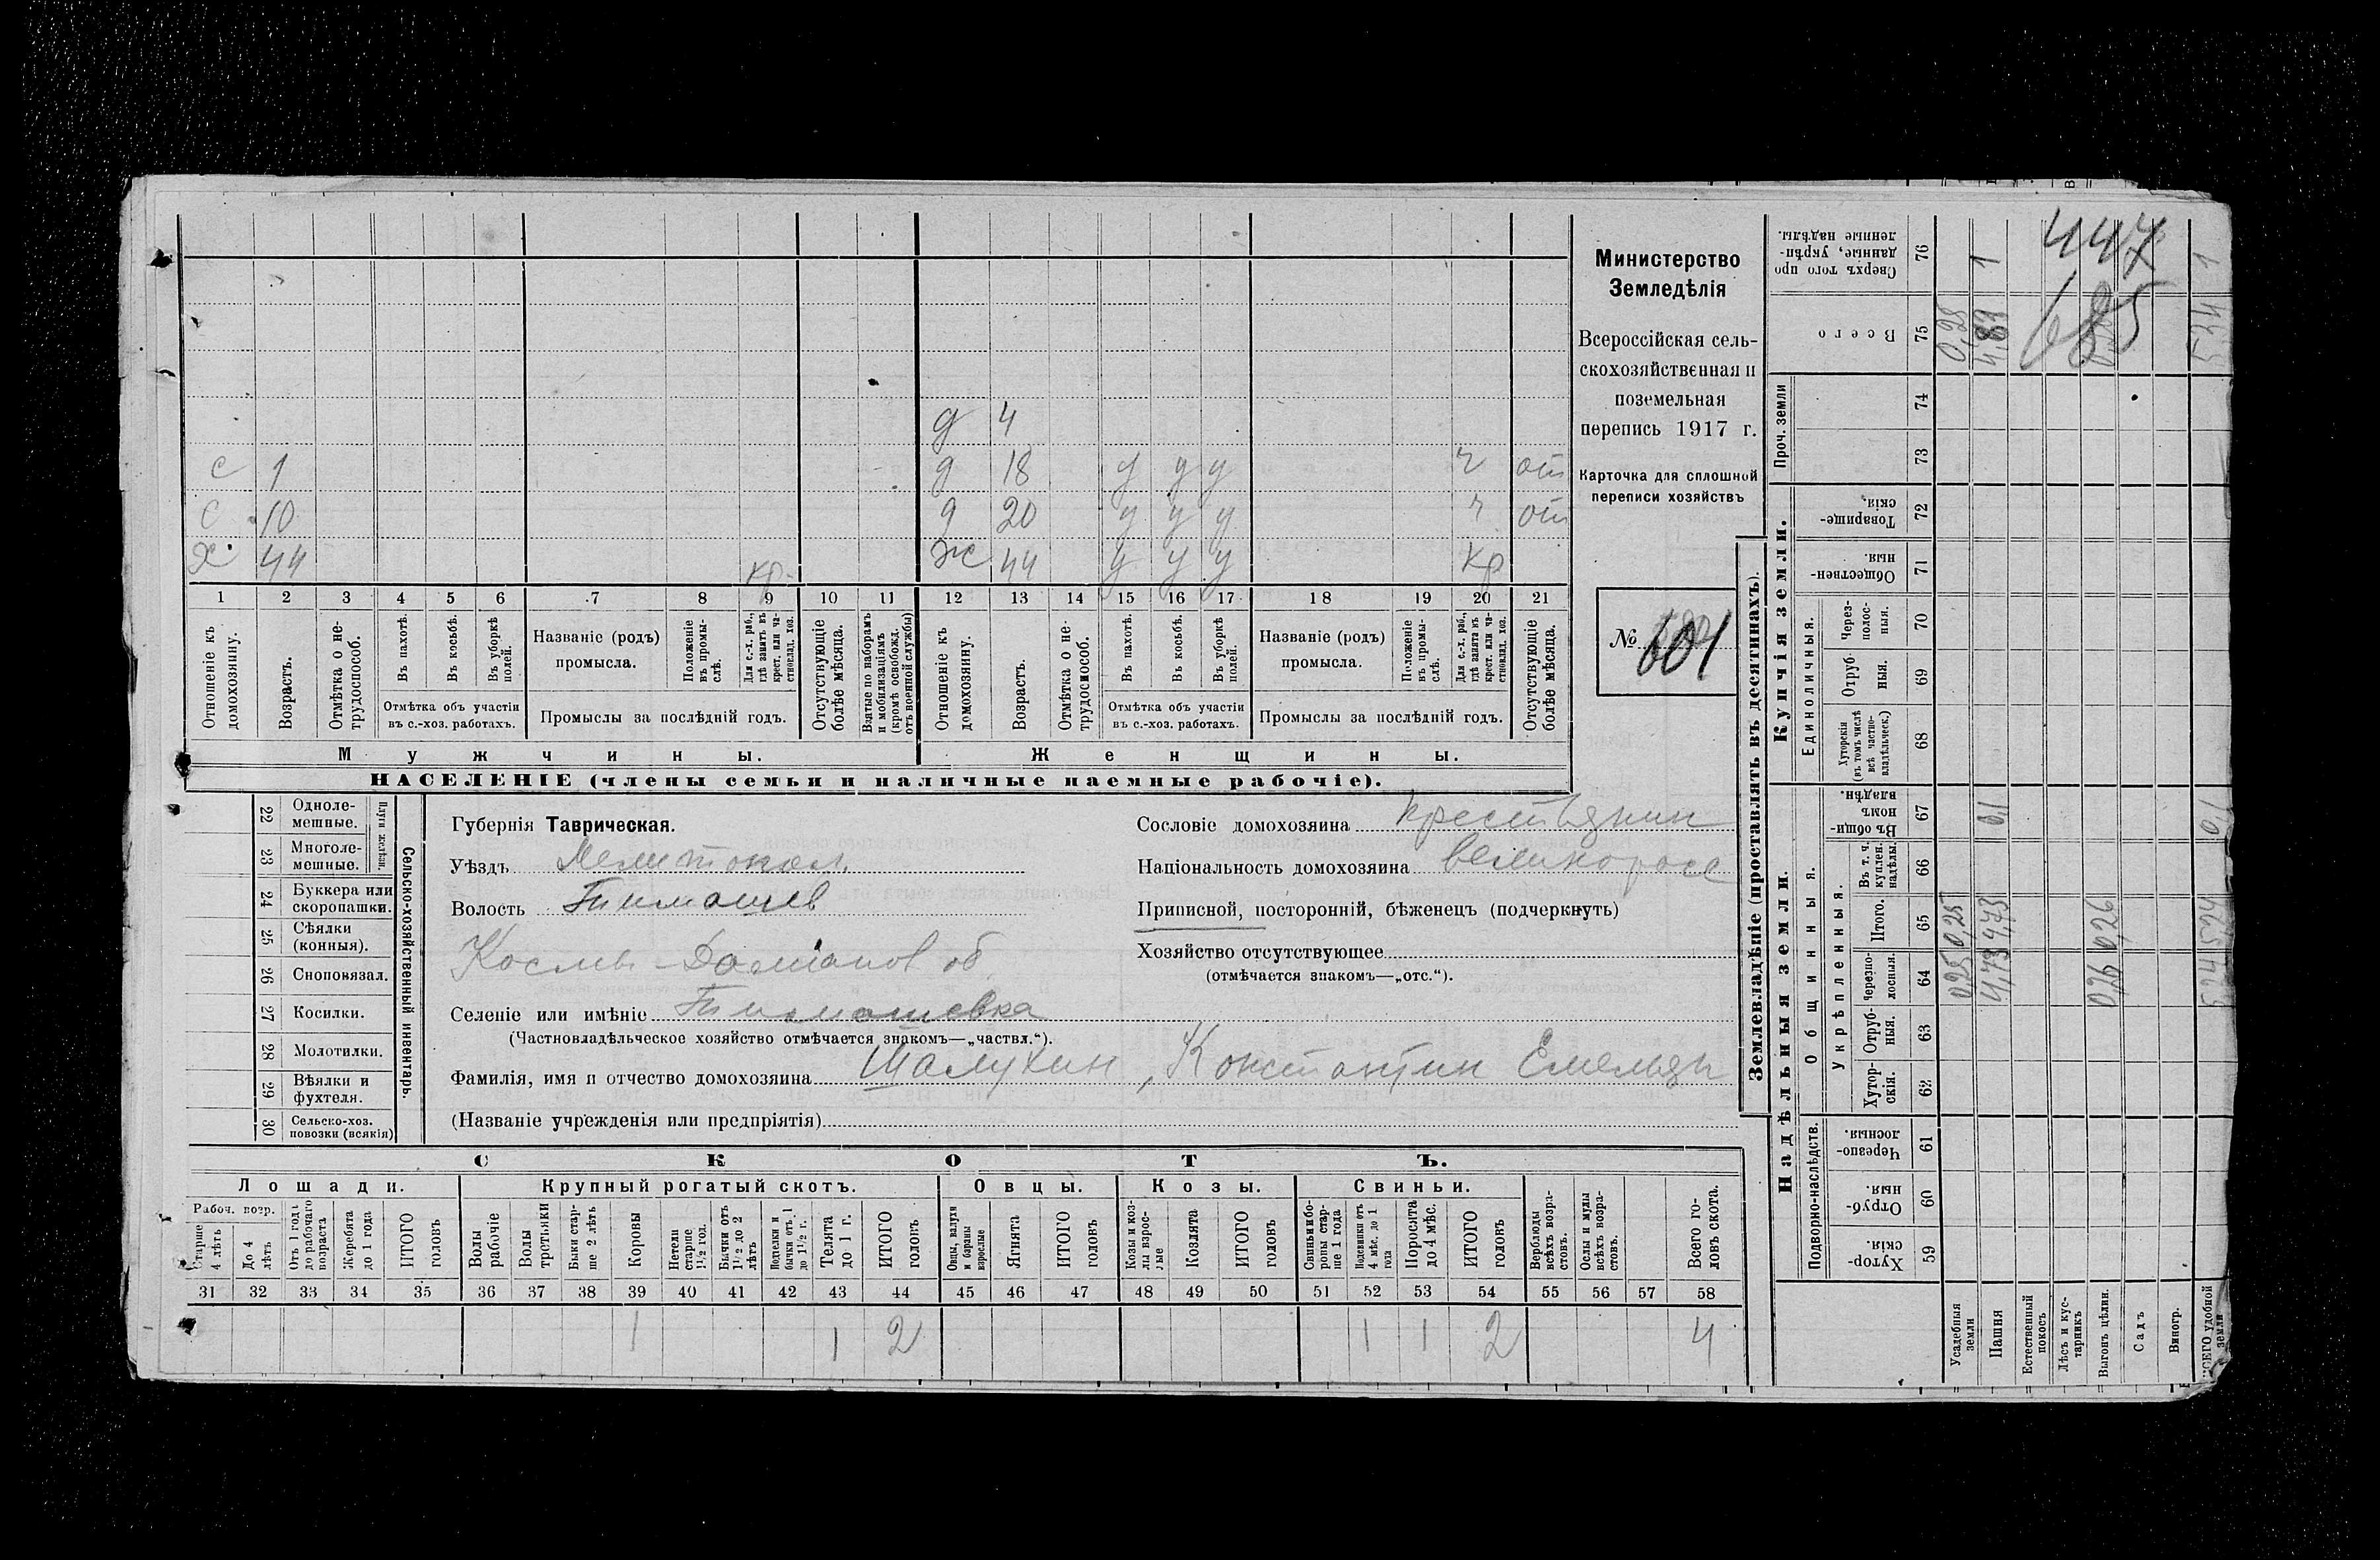 д 4
с 1 д 18 у у у ч от
с 10 д 20 у у у ч от
х 44 кр. ж 44 у у у кр
1 2 3 4 5 6 7 8 9 10 11 12 13 14 15 16 17 18 19 20 21
Отношеніе къ домохозяину.
Возрастъ.
Отмѣтка о нетрудоспособ.
Въ пахотѣ.
Въ косьбѣ.
Въ уборкѣ полей.
Отмѣтка объ участіи
въ с.-хоз. работахъ.
Названіе (родъ)
промысла.
Положеніе въ промыслѣ.
Для с.-х. раб., гдѣ занятъ въ крест. или частновлад. хоз.
Промыслы за послѣдній годъ.
Отсутствующіе болѣе мѣсяца.
Взятые по наборамъ и мобилизаціямъ (кромѣ освобожд. отъ военной службы)
Отношеніе къ домохозяину.
Возрастъ.
Отмѣтка о нетрудоспособ.
Въ пахотѣ.
Въ косьбѣ.
Въ уборкѣ полей.
Отмѣтка объ участіи
въ с.-хоз. работахъ.
Названіе (родъ)
промысла.
Положеніе въ промыслѣ.
Для с.-х. раб., гдѣ занята въ крест. или частновлад. хоз.
Промыслы за послѣдній годъ.
Отсутствующіе болѣе мѣсяца.
Мужчины. Женщины.
НАСЕЛЕНІЕ (члены семьи и наличные наемные рабочіе).
Министерство
Земледѣлія
Всероссійская сель-
скохозяйственная и
поземельная
перепись 1917 г.
Карточка для сплошной
переписи хозяйствъ
№ 601
22 Одноле-
мешные.
23 Многоле-
мешные.
Плуги желѣзн.
24 Буккера или
скоропашки.
25 Сѣялки
(конныя).
26 Сноповязал.
27 Косилки.
28 Молотилки.
29 Вѣялки и
фухтеля.
30 Сельско-хоз.
повозки (всякія)
Сельско-хозяйственный инвентарь.
Губернія Таврическая.
Уѣздъ Мелитопол.
Волость Тимошев
Космо-Дамианов об.
Селеніе или имѣніе Тимошевка
(Частновладѣльческое хозяйство отмѣчается знакомъ—„частвл.“).
Фамилія, имя и отчество домохозяина Шалухин, Константин Емельян
(Названіе учрежденія или предпріятія)
Сословіе домохозяина крестьянин
Національность домохозяина великоросс
Приписной, посторонній, бѣженецъ (подчеркнуть)
Хозяйство отсутствующее
(отмѣчается знакомъ—„отс.“).
СКОТЪ.
Лошади. Крупный рогатый скотъ. Овцы. Козы. Свиньи.
Рабоч. возр.
Старше 4 лѣтъ
До 4 лѣтъ
Отъ 1 года до рабочаго возраста
Жеребята до 1 года
ИТОГО головъ
Волы рабочіе
Волы третьяки
Быки старше 2 лѣтъ
Коровы
Нетели старше 1½ год.
Бычки отъ 1½ до 2 лѣтъ
Подтелки и бычки отъ 1 до 1½ г.
Телята до 1 г.
ИТОГО головъ
Овцы, валухи и бараны взрослые
Ягнята
ИТОГО головъ
Козы и козлы взрослые
Козлята
ИТОГО головъ
Свиньи и боровы старше 1 года
Подсвинки отъ 4 мѣс. до 1 года
Поросята до 4 мѣс.
ИТОГО головъ
Верблюды всѣхъ возрастовъ.
Ослы и мулы всѣхъ возрастовъ.
Всего головъ скота.
31 32 33 34 35 36 37 38 39 40 41 42 43 44 45 46 47 48 49 50 51 52 53 54 55 56 57 58
1 1 2 1 1 2 4
Землевладѣніе (проставлять въ десятинахъ).
Надѣльныя земли. Купчія земли. Проч. земли
Подворно-наслѣдств.
Общинныя.
Укрѣпленныя.
Единоличныя.
Хутор-
скія. 59
Отруб-
ныя. 60
Черезпо-
лосныя. 61
Хутор-
скія. 62
Отруб-
ныя. 63
Черезпо-
лосныя. 64
Итого. 65
Въ т. ч. куплен. надѣлы. 66
Въ общинномъ владѣн. 67
Хуторскія (въ томъ числѣ всѣ частновладѣльческ.) 68
Отруб-
ныя. 69
Через-
полос-
ныя. 70
Обществен-
ныя. 71
Товарище-
скія. 72
73
74
Всего 75
Сверхъ того проданные, укрѣпленные надѣлы. 76
Усадебныя земли 0,25 0,25 0,25
Пашня 4,73 4,73 0,1 4,83 1
Естественный покосъ
Лѣсъ и кустарникъ
Выгонъ цѣлин. 0,26 0,26
Садъ
Виногр.
ВСЕГО удобной земли 5,24 5,24 0,1 5,34 1
447
685